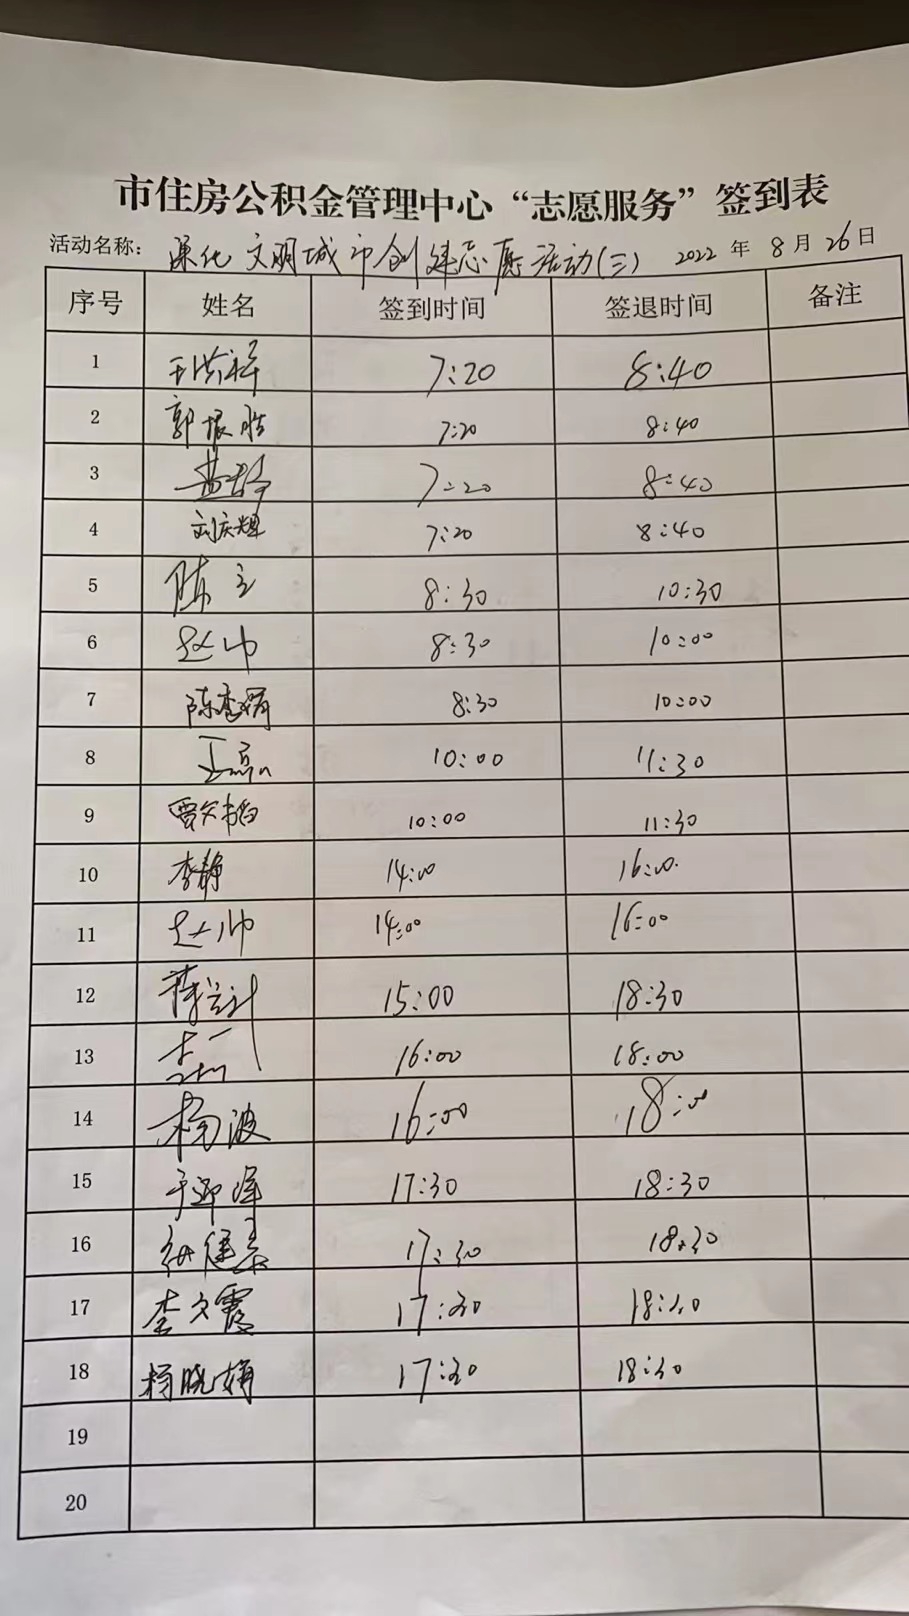 市住房公积金管理中心“志愿服务”签到表
活动名称： 深化文明城市创建志愿活动(三) 2022 年 8 月 26 日
序号 姓名 签到时间 签退时间 备注
1 7:20 8:40
2 郭振 7:20 8:40
3 7:20 8:40
4 刘庆辉 7:20 8:40
5 陈立 8:30 10:30
6 赵帅 8:30 10:00
7 陈 8:30 10:00
8 王 10:00 11:30
9 贾 10:00 11:30
10 李静 14:00 16:00
11 赵帅 14:00 16:00
12 15:00 18:30
13 16:00 18:00
14 杨波 16:00 18:00
15 于迎 17:30 18:30
16 17:30 18:30
17 李文霞 17:30 18:30
18 杨晓娟 17:30 18:30
19
20